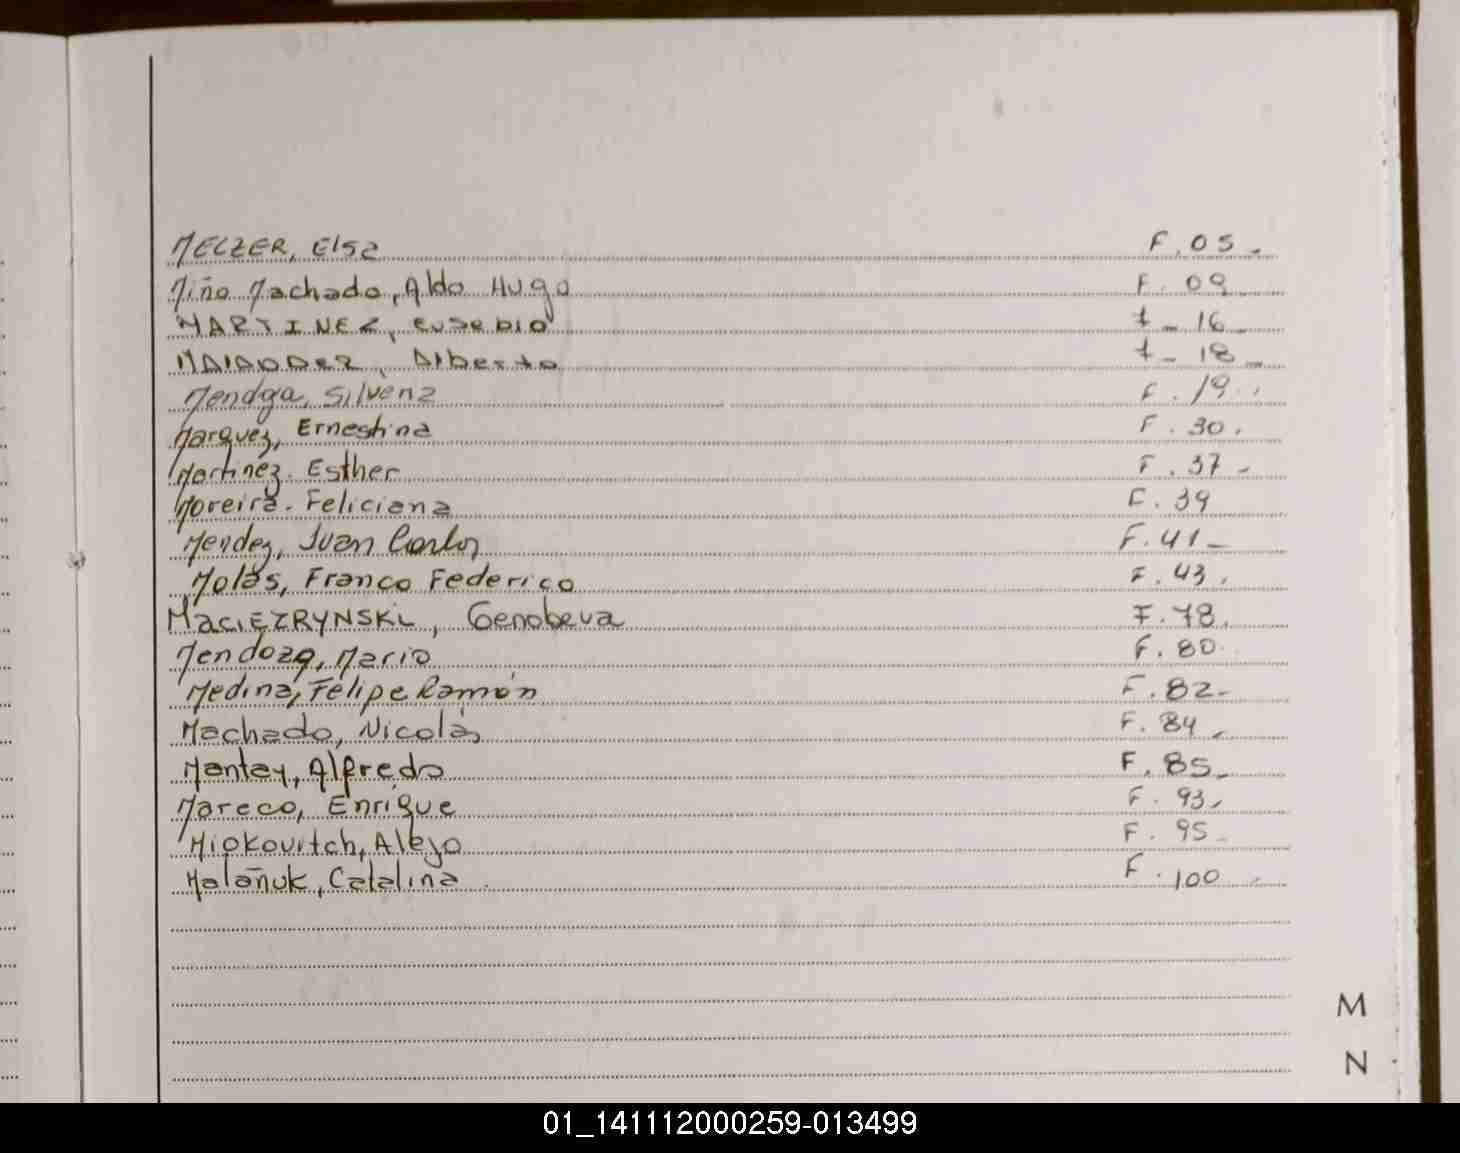 MELZER, Elsa F. 05 -
Miño Machado, Aldo Hugo F. 09
MARTINEZ, Eusebio F - 16 -
Alberto F - 18 -
Mendoza, Silvena F. 19.
Marquez, Ernestina F. 30.
Martinez. Esther F. 37 -
Moreira. Feliciana F. 39
Mendez, Juan Carlos F. 41 -
Molas, Franco Federico F. 43.
MACIEZRYNSKI, Genobeva F. 78.
Mendoza, Mario F. 80.
Medina, Felipe Ramón F. 82 -
Machado, Nicolás F. 84 -
Mantay, Alfredo F. 85 -
Mareco, Enrique F. 93 -
Miokovitch, Alejo F. 95 -
Malañuk, Catalina F. 100 -
M
N
01_141112000259-013499